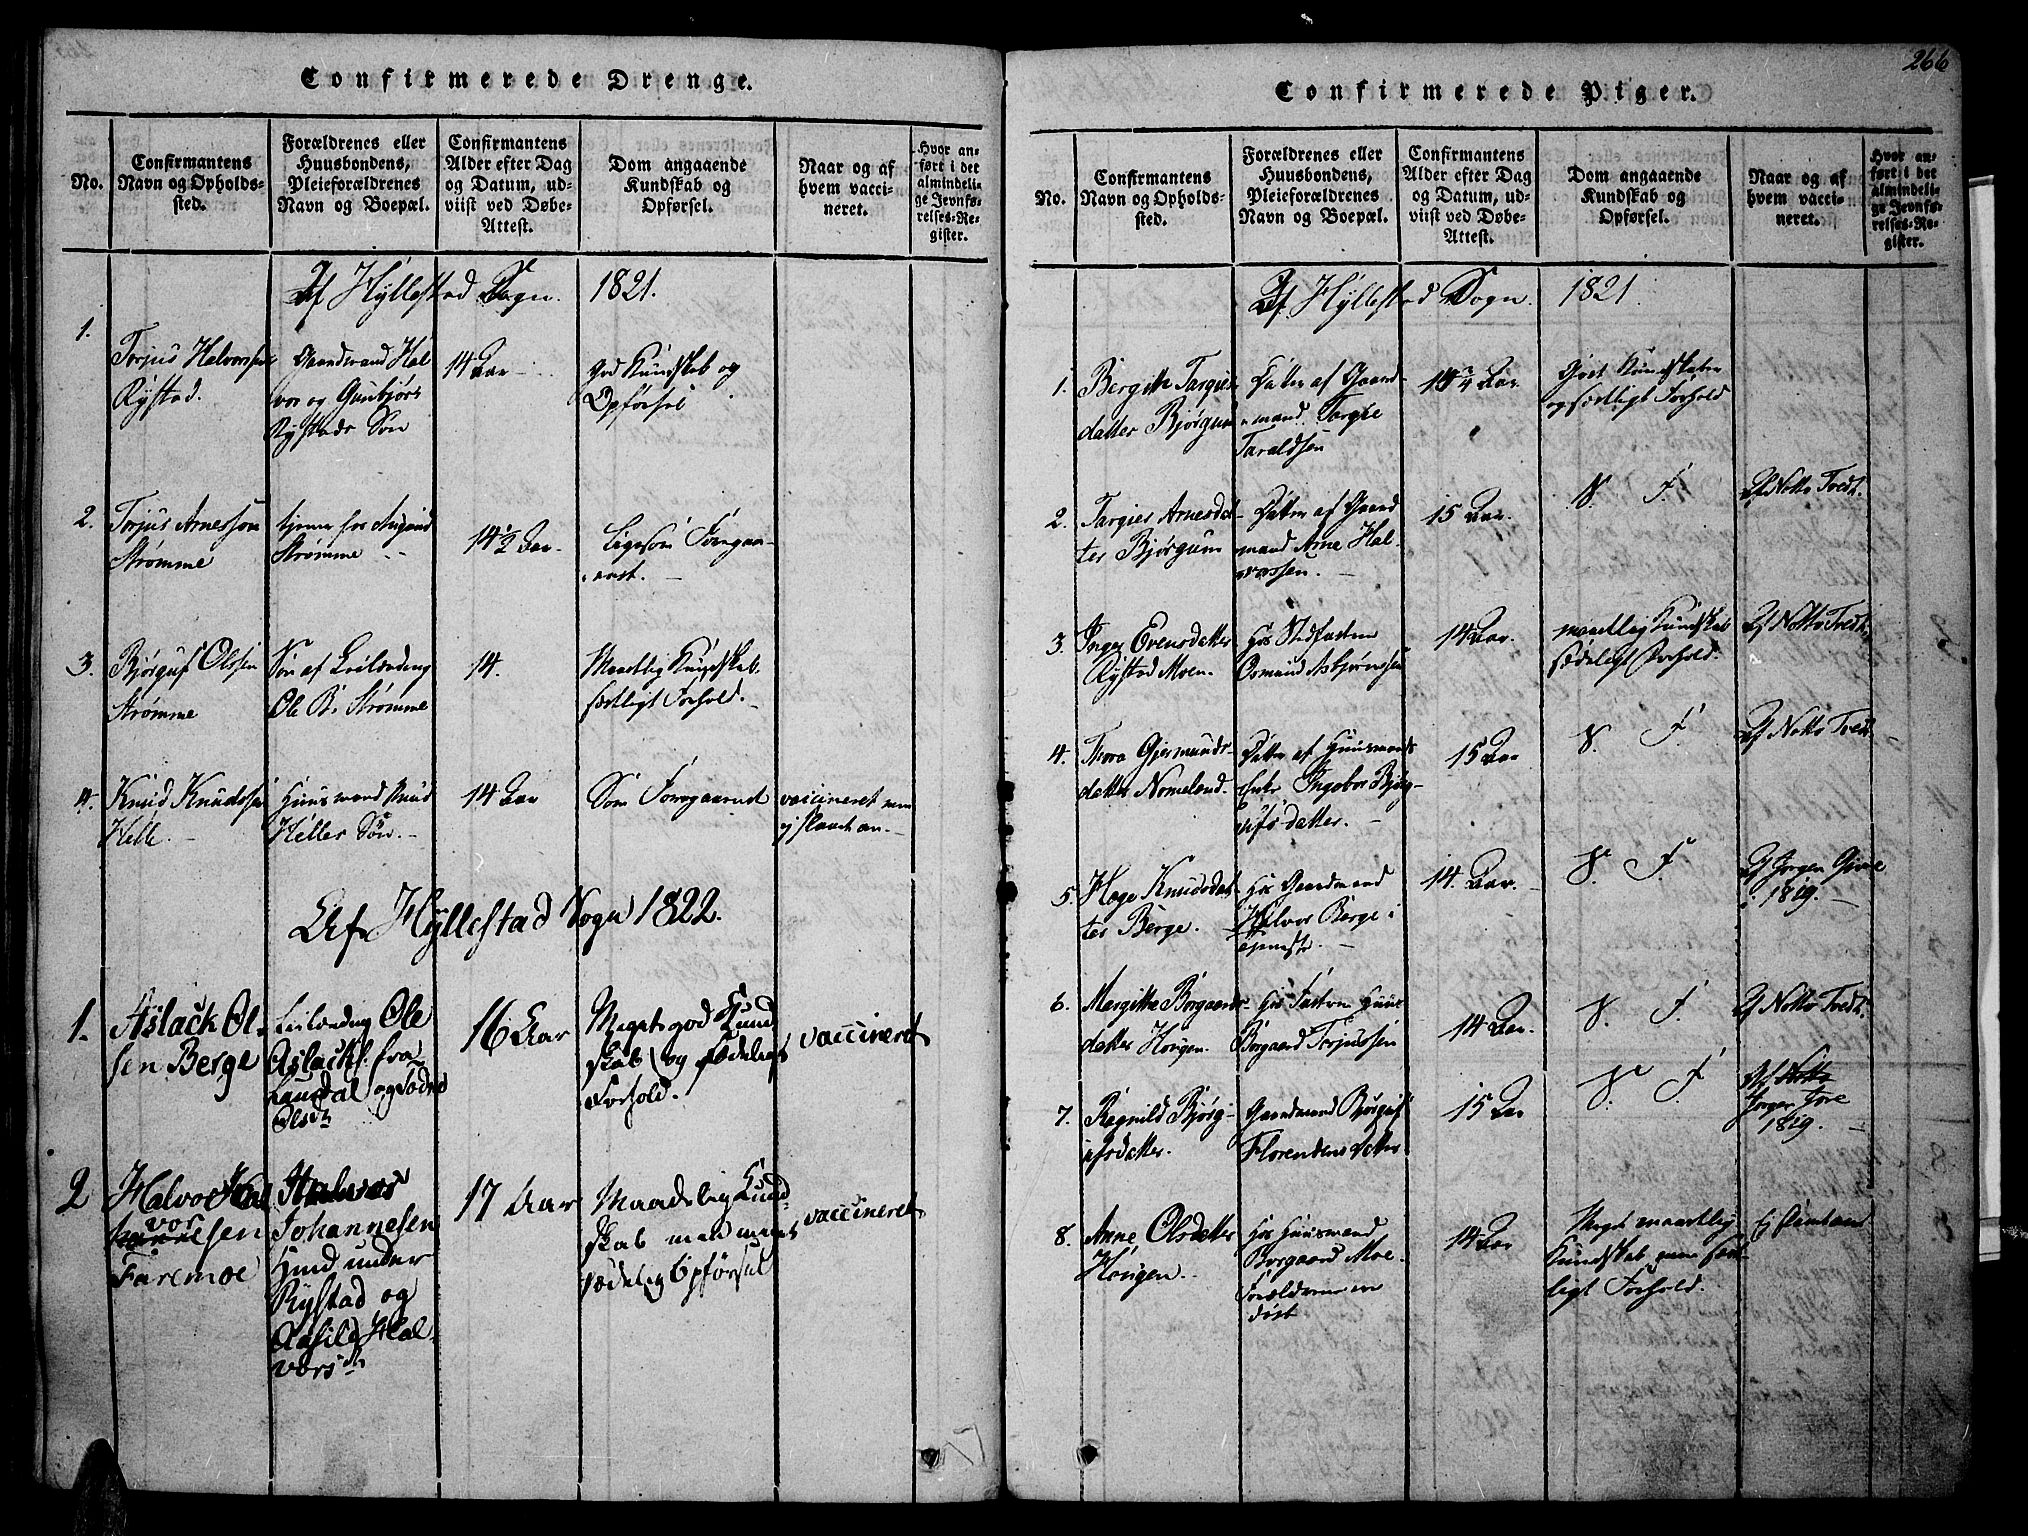 Confirmerede Drenge.
No.
Confirmantens
Navn og Opholds-
sted.
Forældrenes eller
Huusbondens,
Pleieforældrenes
Navn og Boepæl.
Confirmantens
Alder efter Dag
og Datum, ud-
viist ved Døbe-
Attest.
Dom angaaende
Kundskab og
Opførsel.
Naar og af
hvem vacci-
neret.
Hvor an-
ført i det
almindeli-
ge Jevnfø-
relses-Re-
gister.
Af Hyllestad Sogn. 1821.
1.
Torjus Halvorsen
Rystad.
Gaardmand Hal
vor og Gunbjørs
Rystads Søn
14 Aar
god Kundskab og
Opførsel
2.
Torjus Arnesson
Strømme
tjener for
Strømme
14½ Aar.
Ligesom Foregaa-
ende.
3.
Bjørguf Olsen
Strømme
Søn af Leilænding
Ole B. Strømme
14.
Maadelig Kundskab.
sædeligt Forhold.
4.
Knud Knudssen
Helle.
Huusmand Knud
Helles Søn.
14 Aar
Som Foregaaende
vaccineret men
ej slaaet an.
Af Hyllestad Sogn 1822.
1.
Aslack Ol-
sen Berge
Leilænding Ole
Aslacks. fra
og
Olsdr
16 Aar
Meget god Kund
skab og sædeligt
Forhold.
vaccineret
2
Halvor Hal
vorsen
Faremoe
Halvor
Johannesen
Hind under
Rystad og
Aasild Hal-
vorsdr
17 Aar
Maadelig Kund-
skab med meget
sædelig Opførsel
vaccineret
266
Confirmerede Piger.
No.
Confirmantens
Navn og Opholds-
sted.
Forældrenes eller
Huusbondens,
Pleieforældrenes
Navn og Boepæl.
Confirmantens
Alder efter Dag
og Datum, ud-
viist ved Døbe-
Attest.
Dom angaaende
Kundskab og
Opførsel.
Naar og af
hvem vacci-
neret.
Hvor an-
ført i det
almindeli-
ge Jevnfø-
relses-Re-
gister.
Af Hyllestad Sogn. 1821.
1.
Bergith Targies
datter Bjørgum
Datter af Gaard-
mand Targie
Taraldsen
Aar.
God Kundskaber
og sædeligt Forhold
2.
Targier Arnesdat-
ter Bjørgum
Datter af Gaard
mand Arne Hal-
vorssen.
15 Aar.
S. F.
Af Notto Tvedt.
3.
Inger Evensdatter
Rystad Moen.
Hos Stedfaderen
Osmund Asbjørnssen
14 Aar.
maadelig Kundskab
sædeligt Forhold.
Af Notto Tvedt.
4.
Thora Gjermunds-
datter Nomeland.
Datter af Huusmands
Enke Ingebor Bjørg-
ufs datter.
15 Aar
S. F.
Af Notto Tvedt
5.
Hæge Knudsdat-
ter Berge.
Hos Gaardmand
Halvor Berge i
Tjeneste.
14. Aar.
S. F.
Af Jørgen
i 1819.
6.
Margithe Borgaards-
datter Hougen.
Hos Faderen Huus
Borgaard Torjussen
14 Aar.
S. F.
Af Notto Tvedt.
7.
Ragnild Bjørg-
ufsdatter.
Gaardmand Bjørguf
Florendens Datter
15 Aar
S. F.
Af Notto
Jørgen
1819.
8.
Anne Olsdatter
Hougen.
Hos Huusmand
Borgaard Moe
Forældrene ere
død
14 Aar
Meget maadelig
Kundskab men sæde-
ligt Forhold.